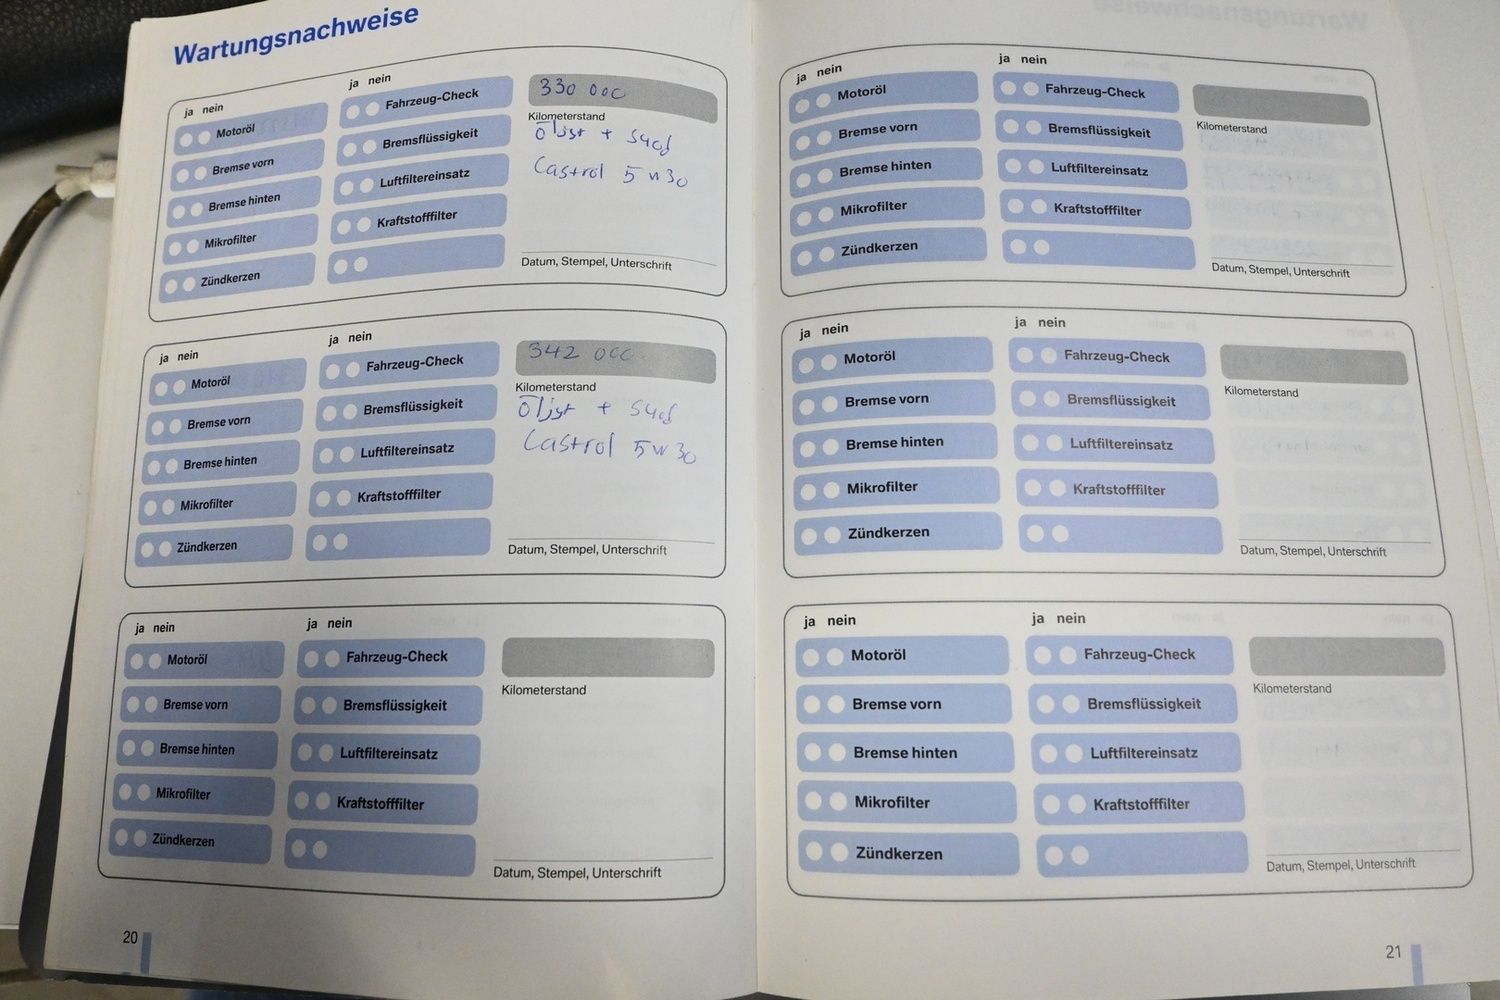 Wartungsnachweise
ja nein
Motoröl
Bremse vorn
Bremse hinten
Mikrofilter
Zündkerzen
ja nein
Fahrzeug-Check
Bremsflüssigkeit
Luftfiltereinsatz
Kraftstofffilter
330 000
Kilometerstand
Castrol 5w30
Datum, Stempel, Unterschrift
ja nein
Motoröl
Bremse vorn
Bremse hinten
Mikrofilter
Zündkerzen
ja nein
Fahrzeug-Check
Bremsflüssigkeit
Luftfiltereinsatz
Kraftstofffilter
342 000
Kilometerstand
Castrol 5w30
Datum, Stempel, Unterschrift
ja nein
Motoröl
Bremse vorn
Bremse hinten
Mikrofilter
Zündkerzen
ja nein
Fahrzeug-Check
Bremsflüssigkeit
Luftfiltereinsatz
Kraftstofffilter
Kilometerstand
Datum, Stempel, Unterschrift
20
ja nein
Motoröl
Bremse vorn
Bremse hinten
Mikrofilter
Zündkerzen
ja nein
Fahrzeug-Check
Bremsflüssigkeit
Luftfiltereinsatz
Kraftstofffilter
Kilometerstand
Datum, Stempel, Unterschrift
ja nein
Motoröl
Bremse vorn
Bremse hinten
Mikrofilter
Zündkerzen
ja nein
Fahrzeug-Check
Bremsflüssigkeit
Luftfiltereinsatz
Kraftstofffilter
Kilometerstand
Datum, Stempel, Unterschrift
ja nein
Motoröl
Bremse vorn
Bremse hinten
Mikrofilter
Zündkerzen
ja nein
Fahrzeug-Check
Bremsflüssigkeit
Luftfiltereinsatz
Kraftstofffilter
Kilometerstand
Datum, Stempel, Unterschrift
21